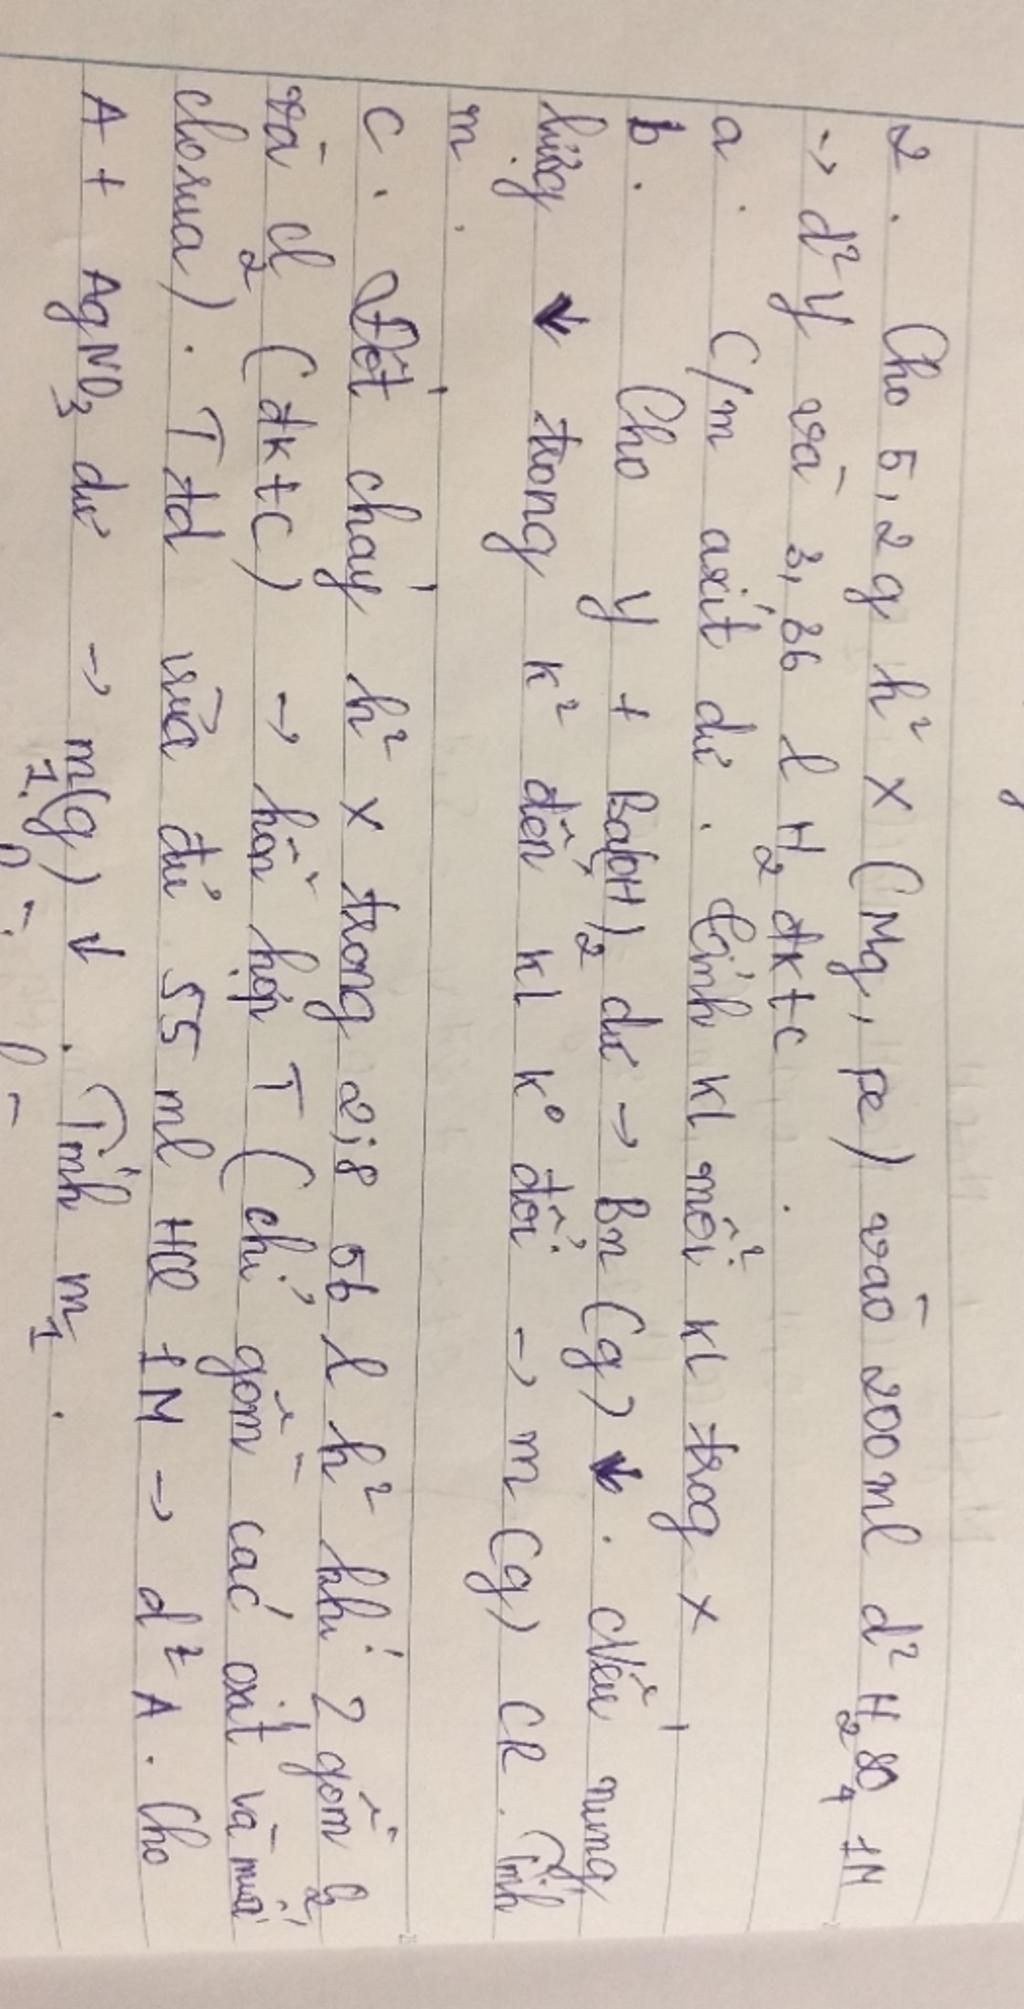 2. Cho 5,2g h² X (Mg, Fe) vào 200ml d² H2SO4 1M
→ d² Y và 3,36 l H2 đktc.
a. C/m axit dư. Tính kl mỗi kl trog X
b. Cho Y + Ba(OH)2 dư → Bn (g) ↓. Nếu nung
lượng ↓ trong k² đến kl k° đổi → m (g) CR. Tính
m.
c. Đốt cháy h² X trong 2,8 56 l h² khí Z gồm O2
và Cl2 (đktc) → hỗn hợp T (chỉ gồm các oxit và muối
clorua). T td vừa đủ 55 ml HCl 1M → d² A. Cho
A + AgNO3 dư → m1(g) ↓. Tính m1.